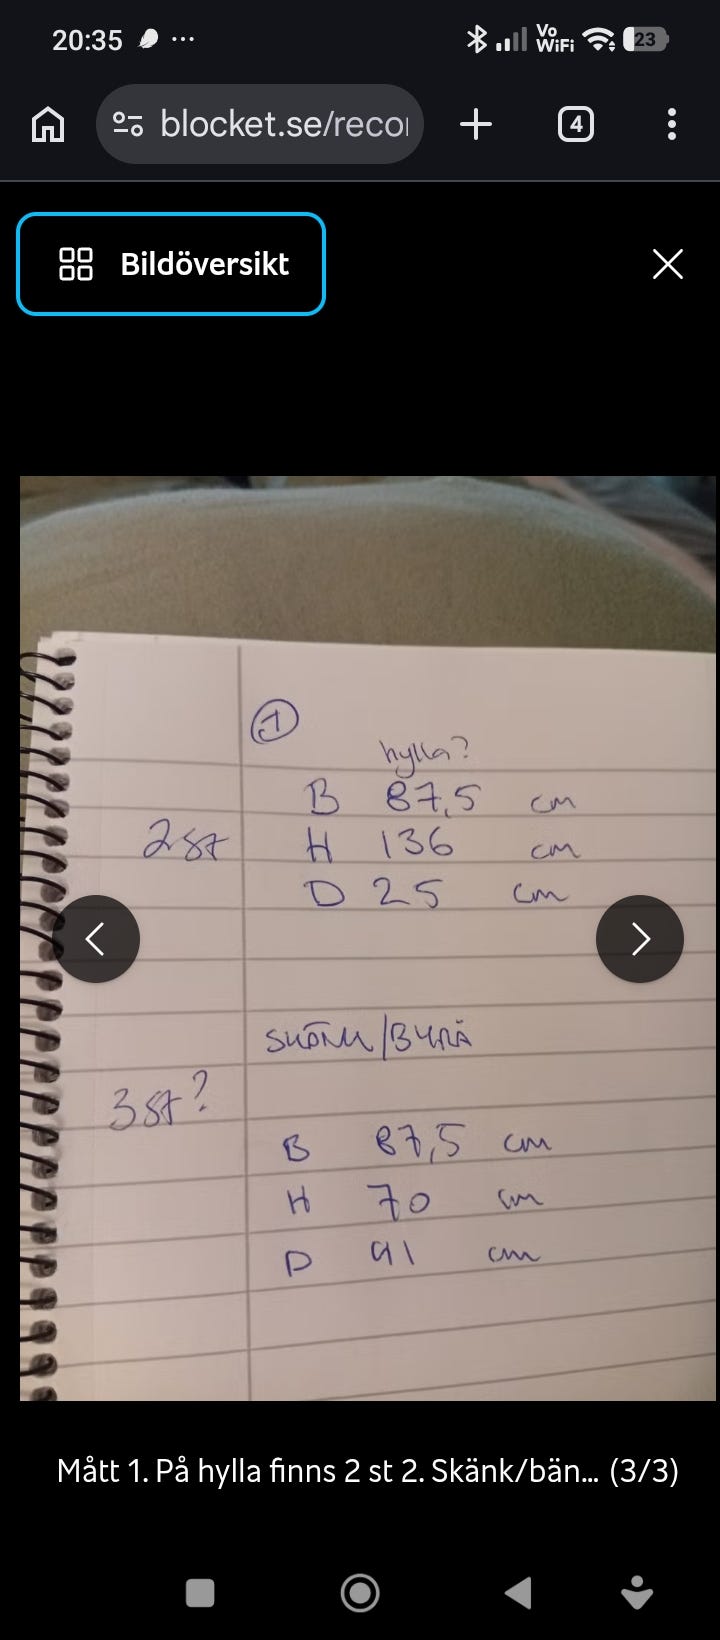 20:35
Vo
WiFi
23
blocket.se/reco
4
Bildöversikt
1
hylla?
B 87,5 cm
2st H 136 cm
D 25 cm
SKÄNK/BYRÅ
3st?
B 87,5 cm
H 70 cm
D 41 cm
Mått 1. På hylla finns 2 st 2. Skänk/bän... (3/3)